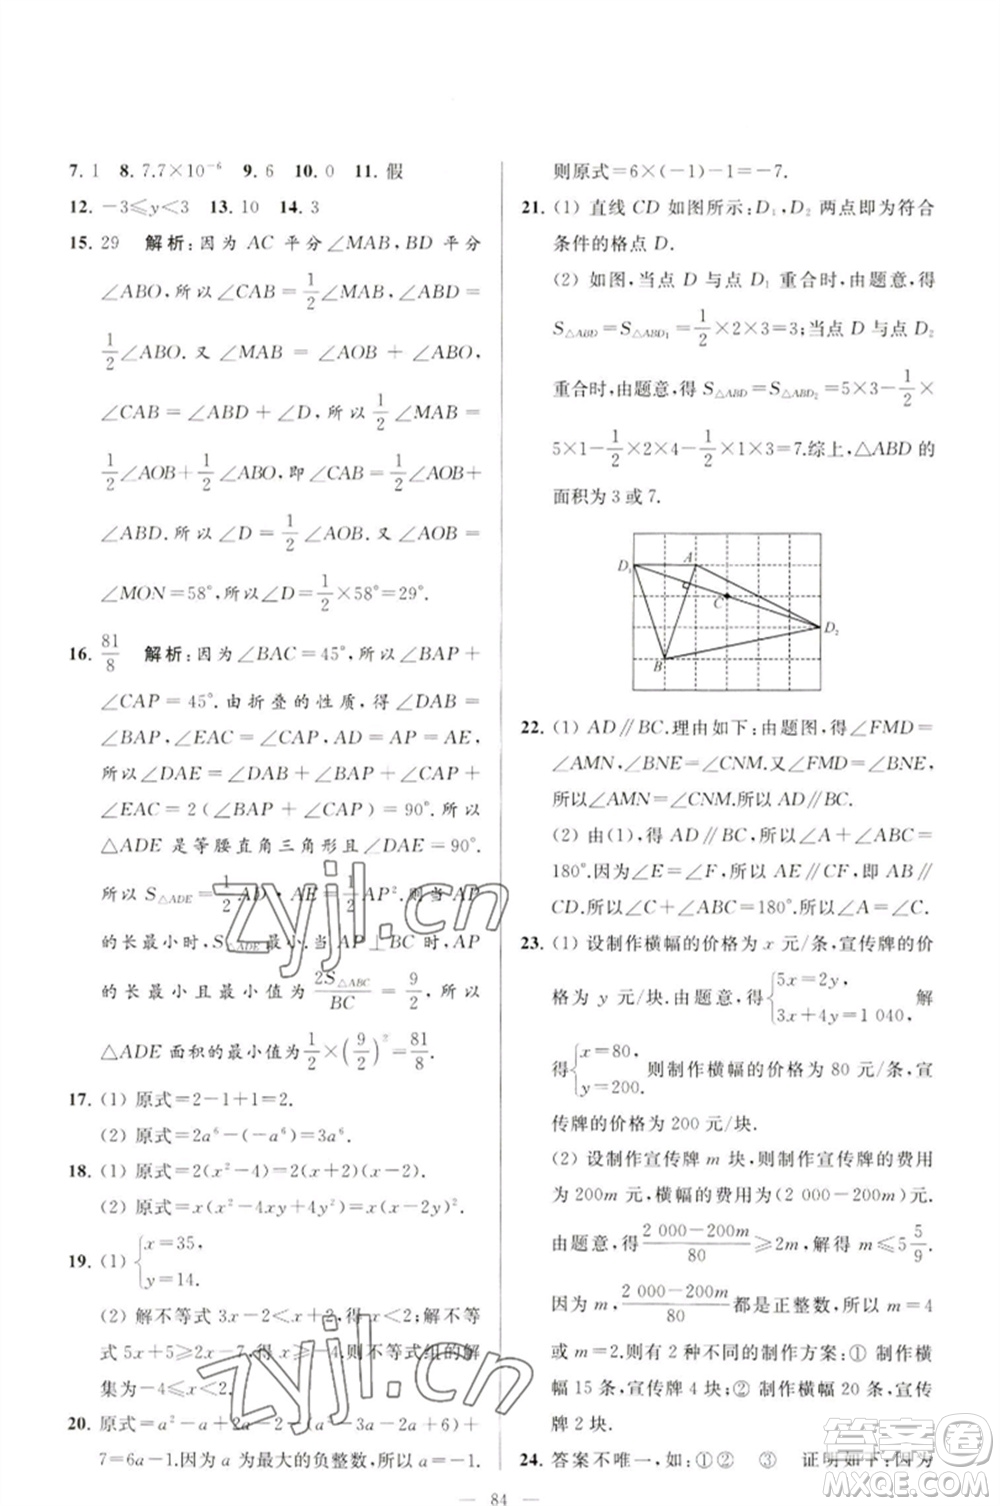 7. 1 8. 7.7×10⁻⁶ 9. 6 10. 0 11. 假
12. －3≤y＜3 13. 10 14. 3
15. 29 解析:因为 AC 平分∠MAB,BD 平分
∠ABO,所以∠CAB=1/2∠MAB,∠ABD=
1/2∠ABO.又∠MAB=∠AOB+∠ABO,
∠CAB=∠ABD+∠D,所以1/2∠MAB=
1/2∠AOB+1/2∠ABO,即∠CAB=1/2∠AOB+
∠ABD.所以∠D=1/2∠AOB.所以当
∠MON=58°时,∠D=1/2×58°=29°.
16. 81/8 解析:因为∠BAC=45°,所以∠BAP+
∠CAP=45°.由折叠的性质,得∠DAB=
∠BAP,∠EAC=∠CAP,AD=AP=AE,
所以∠DAE=∠DAB+∠BAP+∠CAP+
∠EAC=2(∠BAP+∠CAP)=90°.所以
△ADE 是等腰直角三角形且∠DAE=90°.
所以 S△ADE=1/2AD·AE=1/2AP².则当 AP
的长最小时,S△ADE最小.当 AP⊥BC 时,AP
的长最小且最小值为2S△ABC/BC=9/2,所以
△ADE 面积的最小值为1/2×(9/2)²=81/8.
17. (1) 原式=2－1+1=2.
(2) 原式=2a⁶－(－a⁶)=3a⁶.
18. (1) 原式=2(x²－4)=2(x+2)(x－2).
(2) 原式=x(x²－4xy+4y²)=x(x－2y)².
19. (1) {x=35,
y=14.
(2) 解不等式 3x－2＜x+2,得 x＜2;解不等
式 5x+5≥2x－7,得 x≥－4.则不等式组的解
集为－4≤x＜2.
20. 原式=a²－a+2a－2－(a²－3a－2a+6)+
7=6a－1.因为 a 为最大的负整数,所以 a=－1.
则原式=6×(－1)－1=－7.
21. (1) 直线 CD 如图所示;D₁,D₂ 两点即为符合
条件的格点 D.
(2) 如图,当点 D 与点 D₁ 重合时,由题意,得
S△ABD=S△ABD₁=1/2×2×3=3;当点 D 与点 D₂
重合时,由题意,得 S△ABD=S△ABD₂=5×3－1/2×
5×1－1/2×2×4－1/2×1×3=7.综上,△ABD 的
面积为 3 或 7.
D₁ A
C
D₂
B
22. (1) AD∥BC.理由如下:由题图,得∠FMD=
∠AMN,∠BNE=∠CNM.又∠FMD=∠BNE,
所以∠AMN=∠CNM.所以 AD∥BC.
(2) 由(1),得 AD∥BC,所以∠A+∠ABC=
180°.因为∠E=∠F,所以 AE∥CF,即 AB∥
CD.所以∠C+∠ABC=180°.所以∠A=∠C.
23. (1) 设制作横幅的价格为 x 元/条,宣传牌的价
格为 y 元/块.由题意,得{5x=2y,
3x+4y=1 040, 解
得{x=80,
y=200. 则制作横幅的价格为 80 元/条,宣
传牌的价格为 200 元/块.
(2) 设制作宣传牌 m 块,则制作宣传牌的费用
为 200m 元,横幅的费用为(2 000－200m)元.
由题意,得(2 000－200m)/80≥2m,解得 m≤5 5/9.
因为 m,(2 000－200m)/80都是正整数,所以 m=4
或 m=2.则有 2 种不同的制作方案:① 制作横
幅 15 条,宣传牌 4 块;② 制作横幅 20 条,宣传
牌 2 块.
24. 答案不唯一,如:①② ③ 证明如下:因为
— 84 —
zyjl.cn
zyjl.cn
答案圈
MXQE.COM